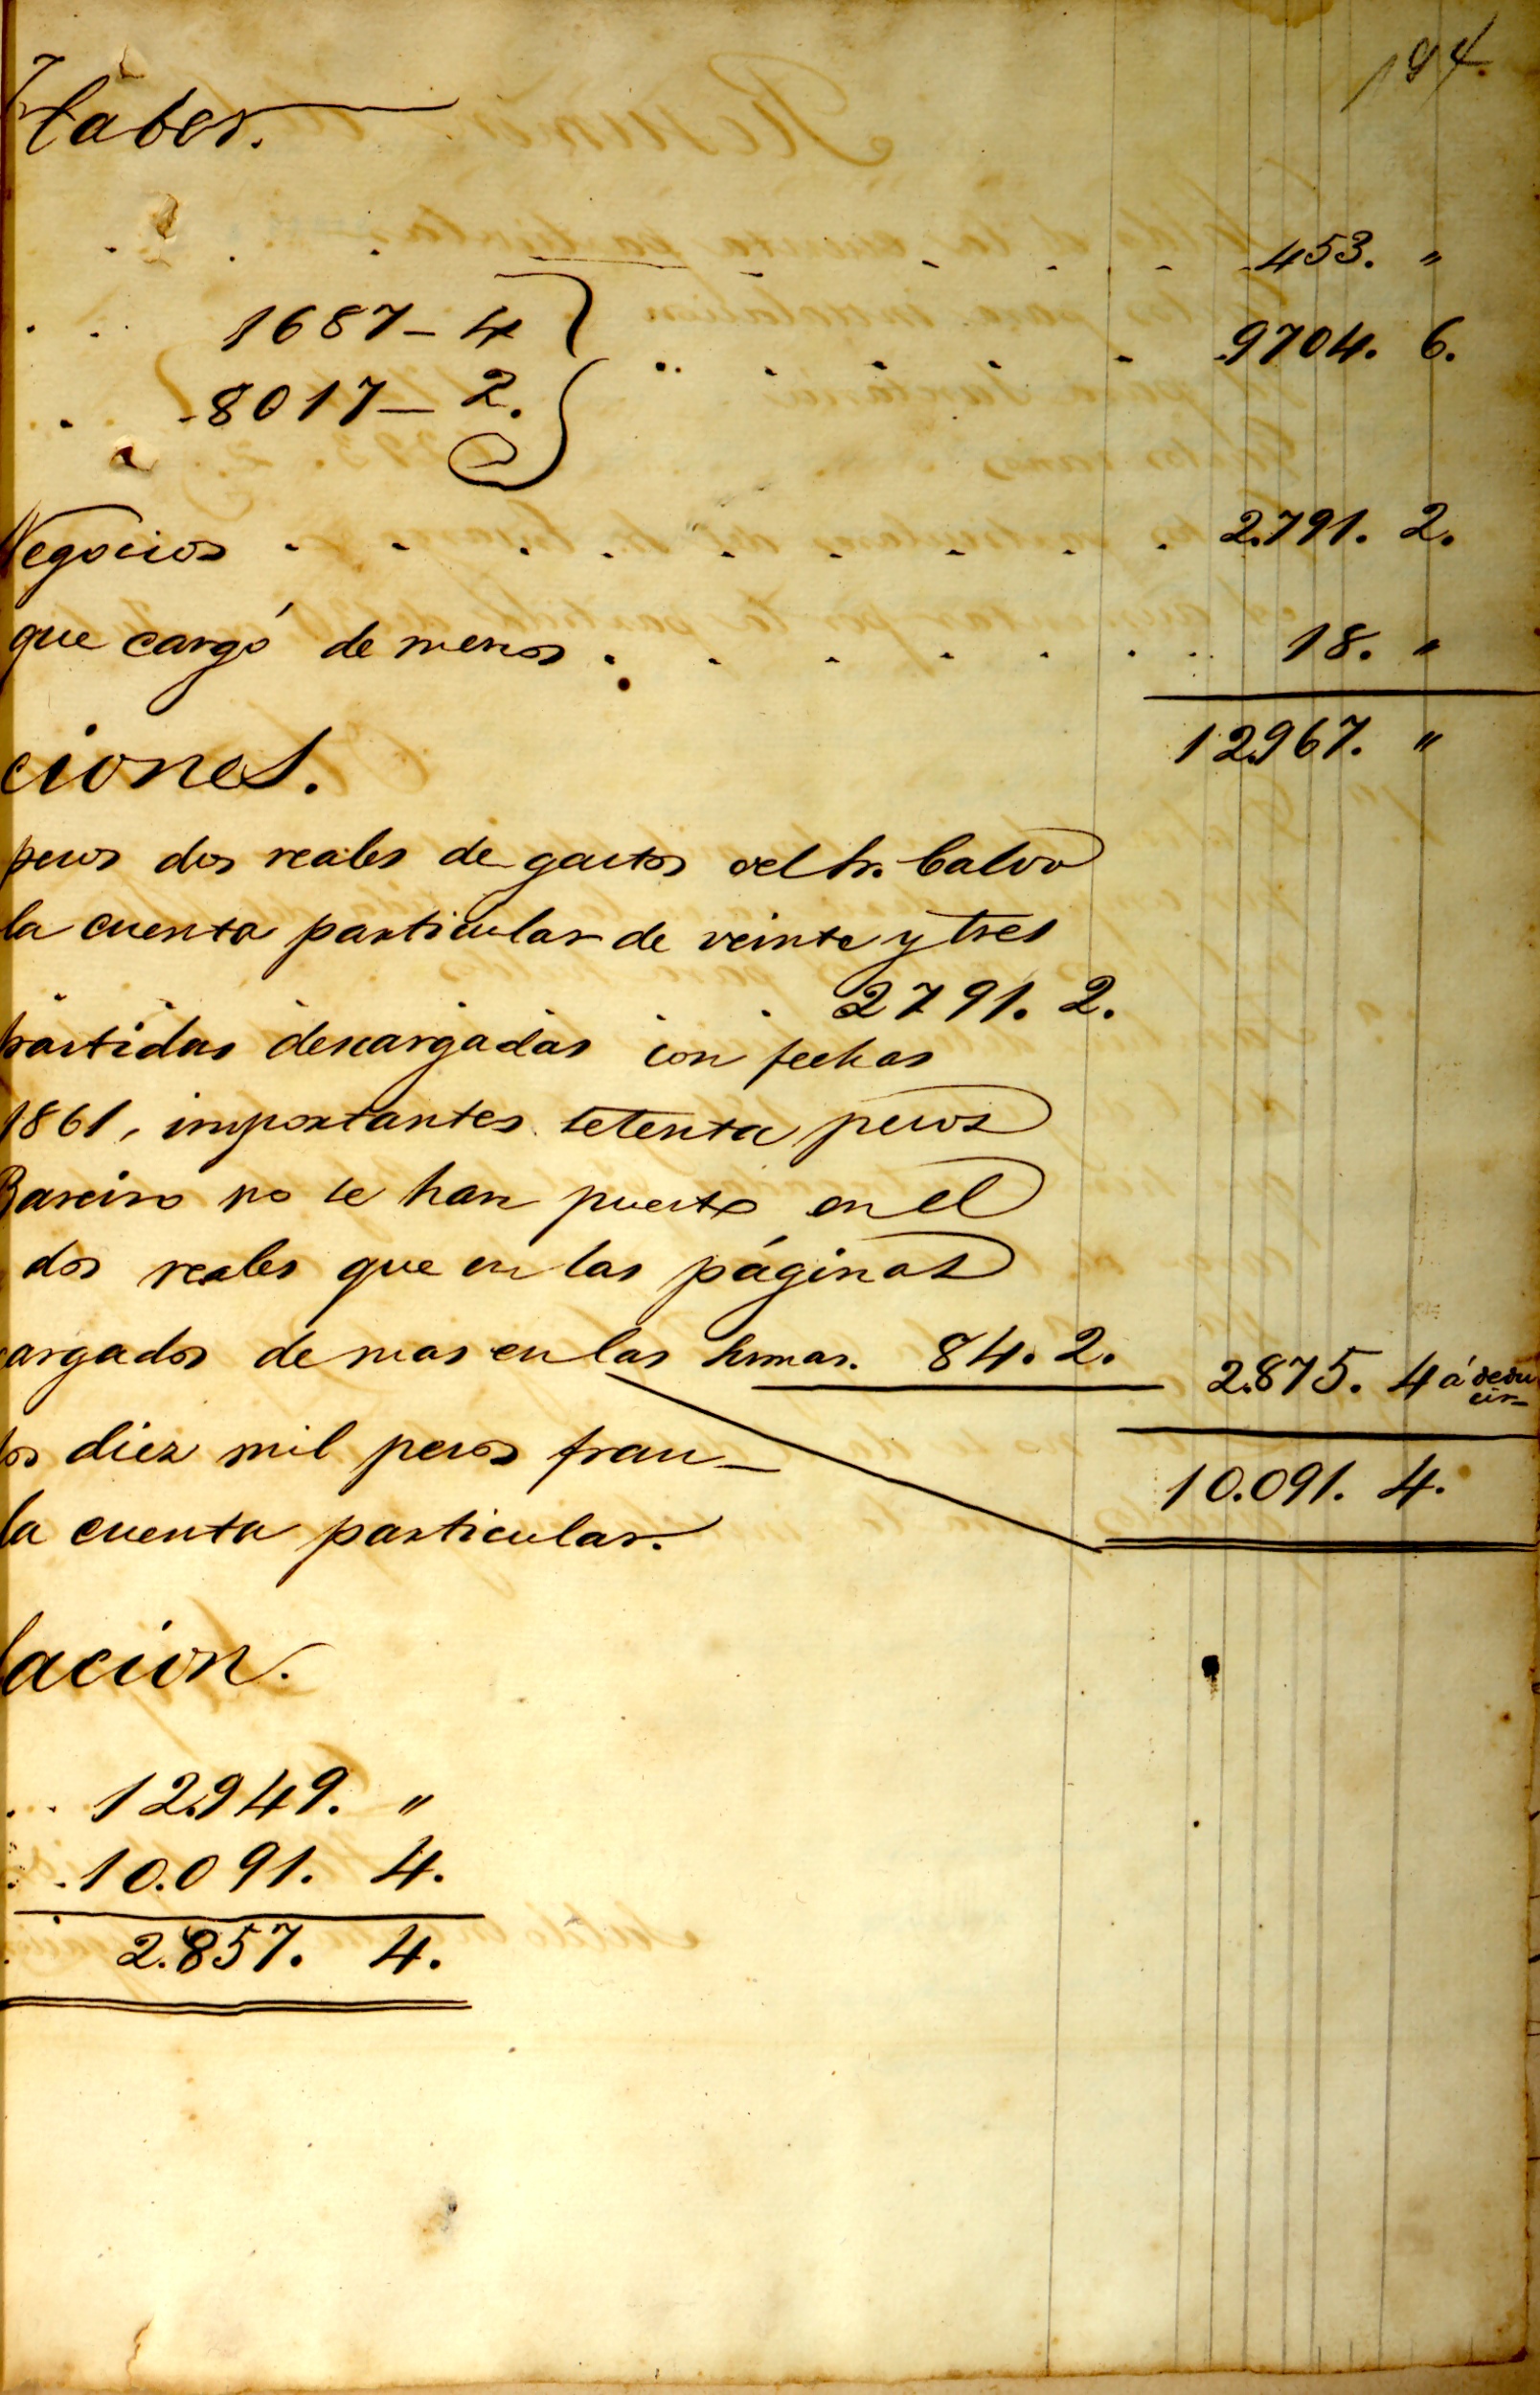 194.
Haber.
453. "
1687 - 4
9704. 6.
8017 - 2.
Negocios 2.791. 2.
que cargó de menos 18. "
12.967. "
ciones.
pesos dos reales de gastos del Sr. Calvo
la cuenta particular de veinte y tres
2791. 2.
partidas descargadas con fechas
1861, importantes setenta pesos
Bareiro no se han puesto en el
dos reales que en las páginas
argados de mas en las sumas. 84. 2. 2.875. 4 á dedu
cir
os diez mil pesos fran-
10.091. 4.
la cuenta particular.
lacion.
12.949. "
10.091. 4.
2.857. 4.